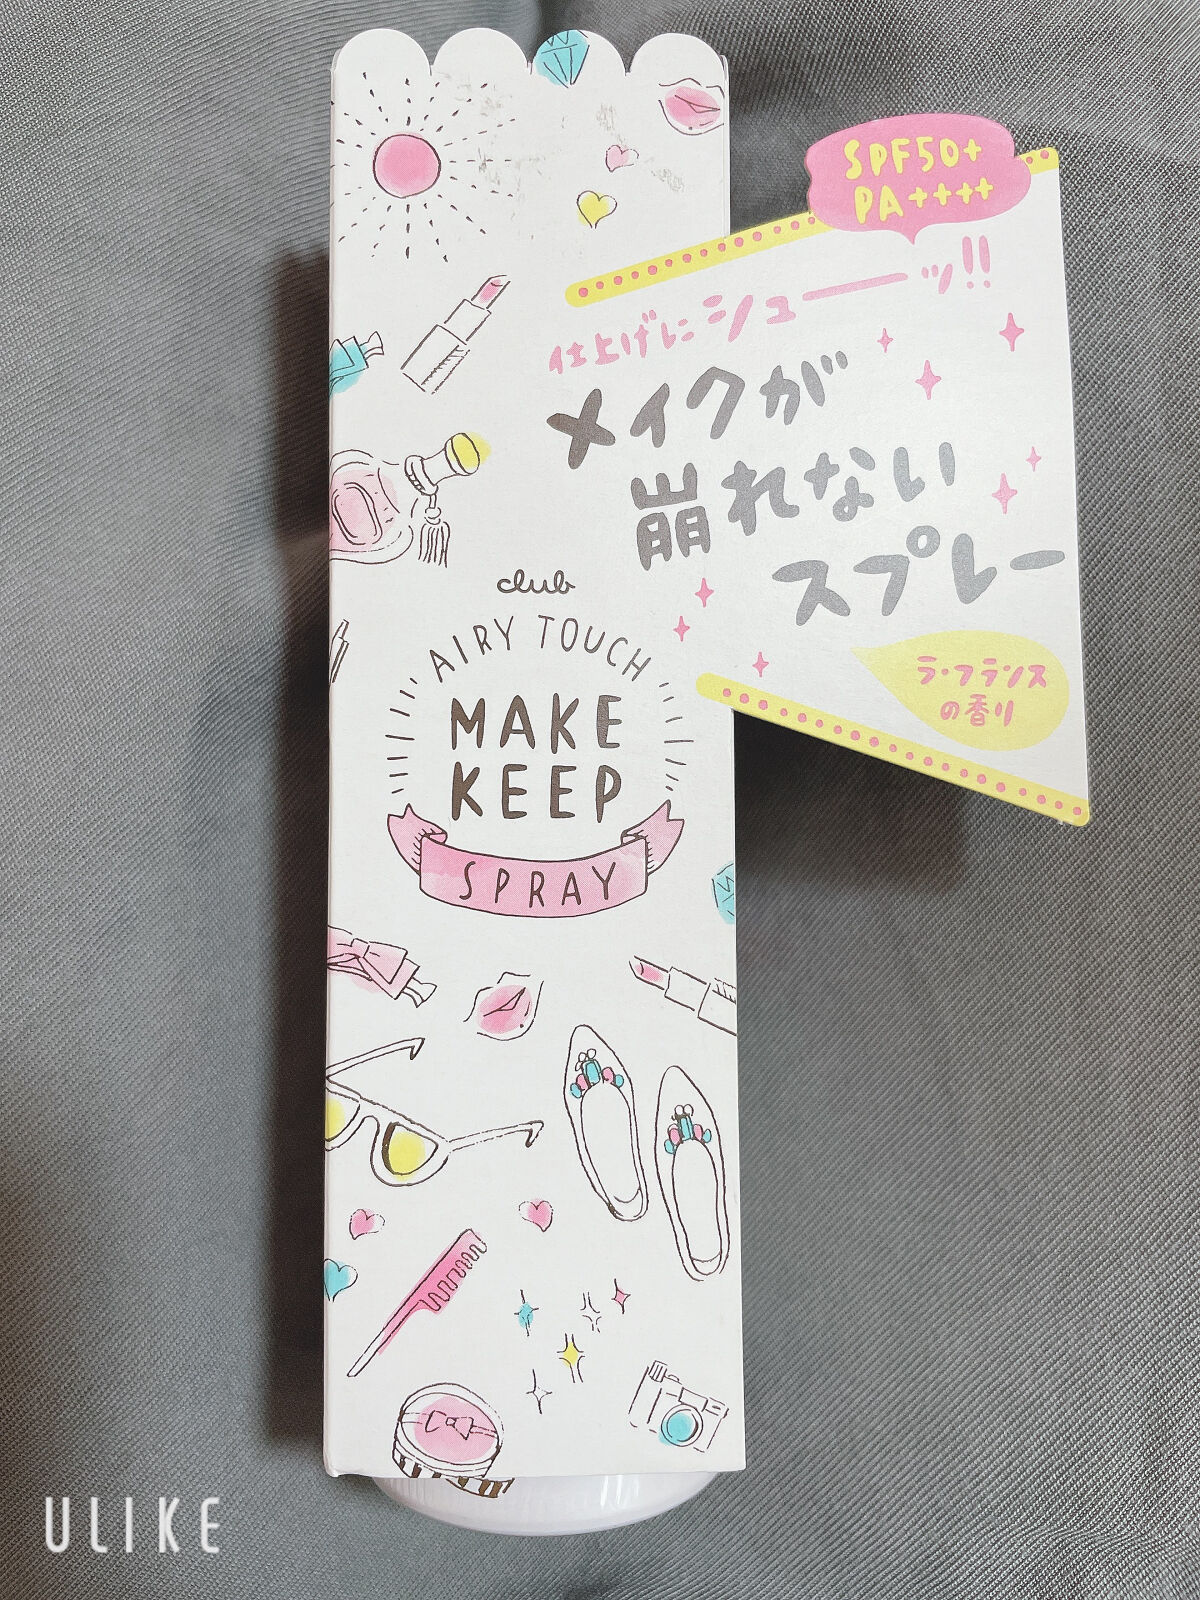 SPF50+
PA++++
仕上げにシューーッ!!
メイクが
崩れない
スプレー
ラ・フランス
の香り
club
AIRY TOUCH
MAKE
KEEP
SPRAY
ULIKE